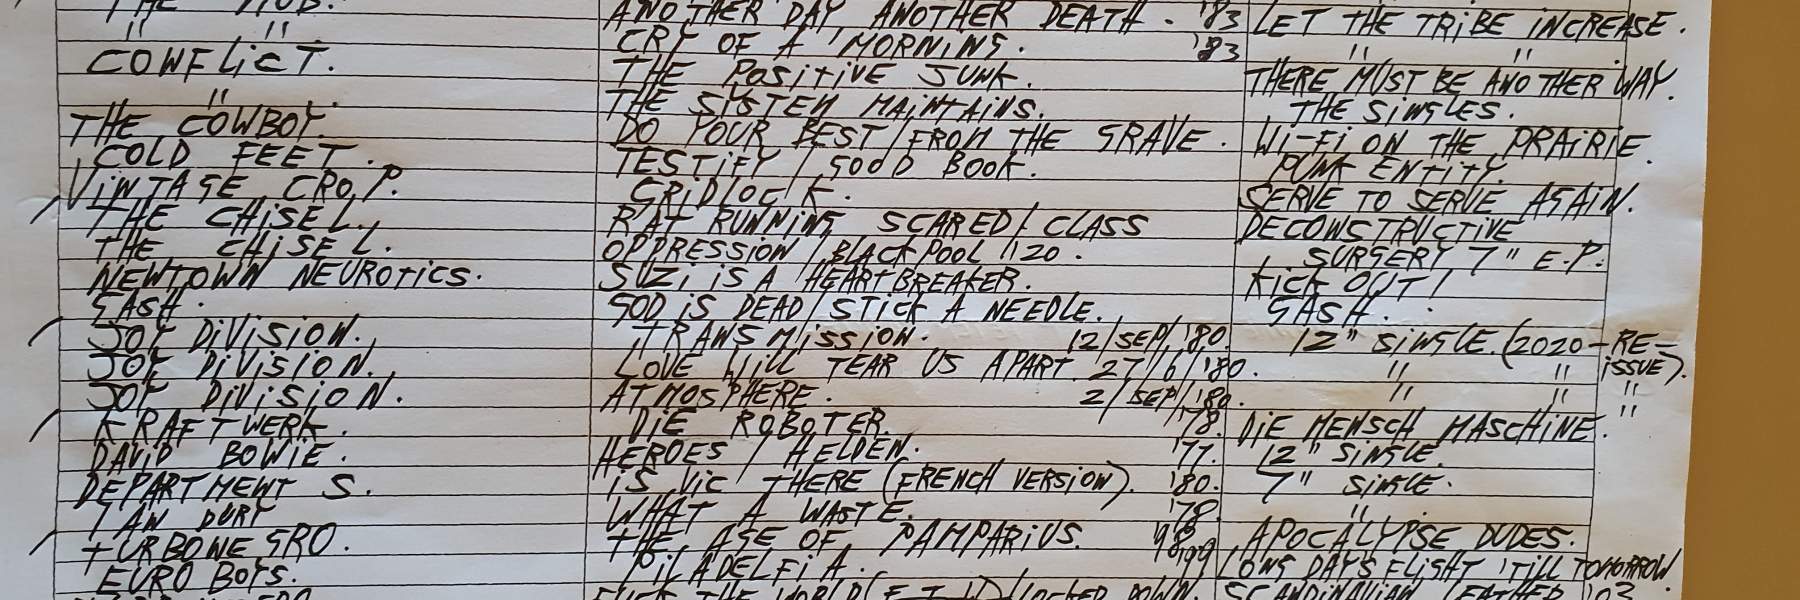 THE MOB. ANOTHER DAY ANOTHER DEATH. '83 LET THE TRIBE INCREASE.
" " CRY OF A MORNING. '83 " "
CONFLICT. THE POSITIVE JUNK. THERE MUST BE ANOTHER WAY.
" THE SYSTEM MAINTAINS. THE SINGLES.
THE COWBOY. DO YOUR BEST / FROM THE GRAVE. WI-FI ON THE PRAIRIE.
COLD FEET. TESTIFY / GOOD BOOK. PUNK ENTITY.
VINTAGE CROP. GRIDLOCK. SERVE TO SERVE AGAIN.
THE CHISEL. RAT RUNNING SCARED / CLASS DECONSTRUCTIVE
THE CHISEL. OPPRESSION / BLACKPOOL '20. SURGERY 7" E.P.
NEWTOWN NEUROTICS. SUZI IS A HEARTBREAKER. KICK OUT!
GASH. GOD IS DEAD / STICK A NEEDLE. GASH.
JOY DIVISION. TRANSMISSION. 12/SEP/'80. 12" SINGLE. (2020-RE-
JOY DIVISION. LOVE WILL TEAR US APART. 27/6/'80. " " ISSUE).
JOY DIVISION. ATMOSPHERE. 2/SEP/'80. " " "
KRAFTWERK. DIE ROBOTER. '78. DIE MENSCH MASCHINE. "
DAVID BOWIE. HEROES / HELDEN. '77. 12" SINGLE.
DEPARTMENT S. IS VIC THERE (FRENCH VERSION). '80. 7" SINGLE.
IAN DURY WHAT A WASTE. '78. "
TURBONEGRO. THE AGE OF PAMPARIUS. 98/99 APOCALYPSE DUDES.
EURO BOYS. PILADELFIA. LONG DAY'S FLIGHT 'TILL TOMORROW
THE WORLD LOCKED DOWN. SCANDINAVIAN LEATHER '03